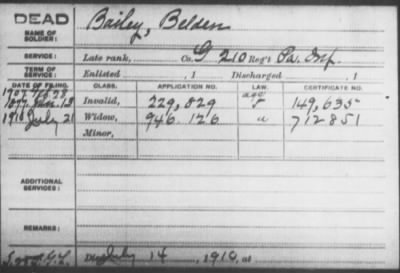 DEAD
NAME OF SOLDIER: Bailey, Belden
SERVICE: Late rank, Co. G 210 Reg't Pa. Inf.
TERM OF SERVICE: Enlisted , 1 Discharged , 1
DATE OF FILING. CLASS. APPLICATION NO. LAW. CERTIFICATE NO.
1877 Invalid, 229,829 149,635
1910 July 21 Widow, 946.126 " 712851
Minor,
ADDITIONAL SERVICES:
REMARKS:
Died July 14 , 1910, at